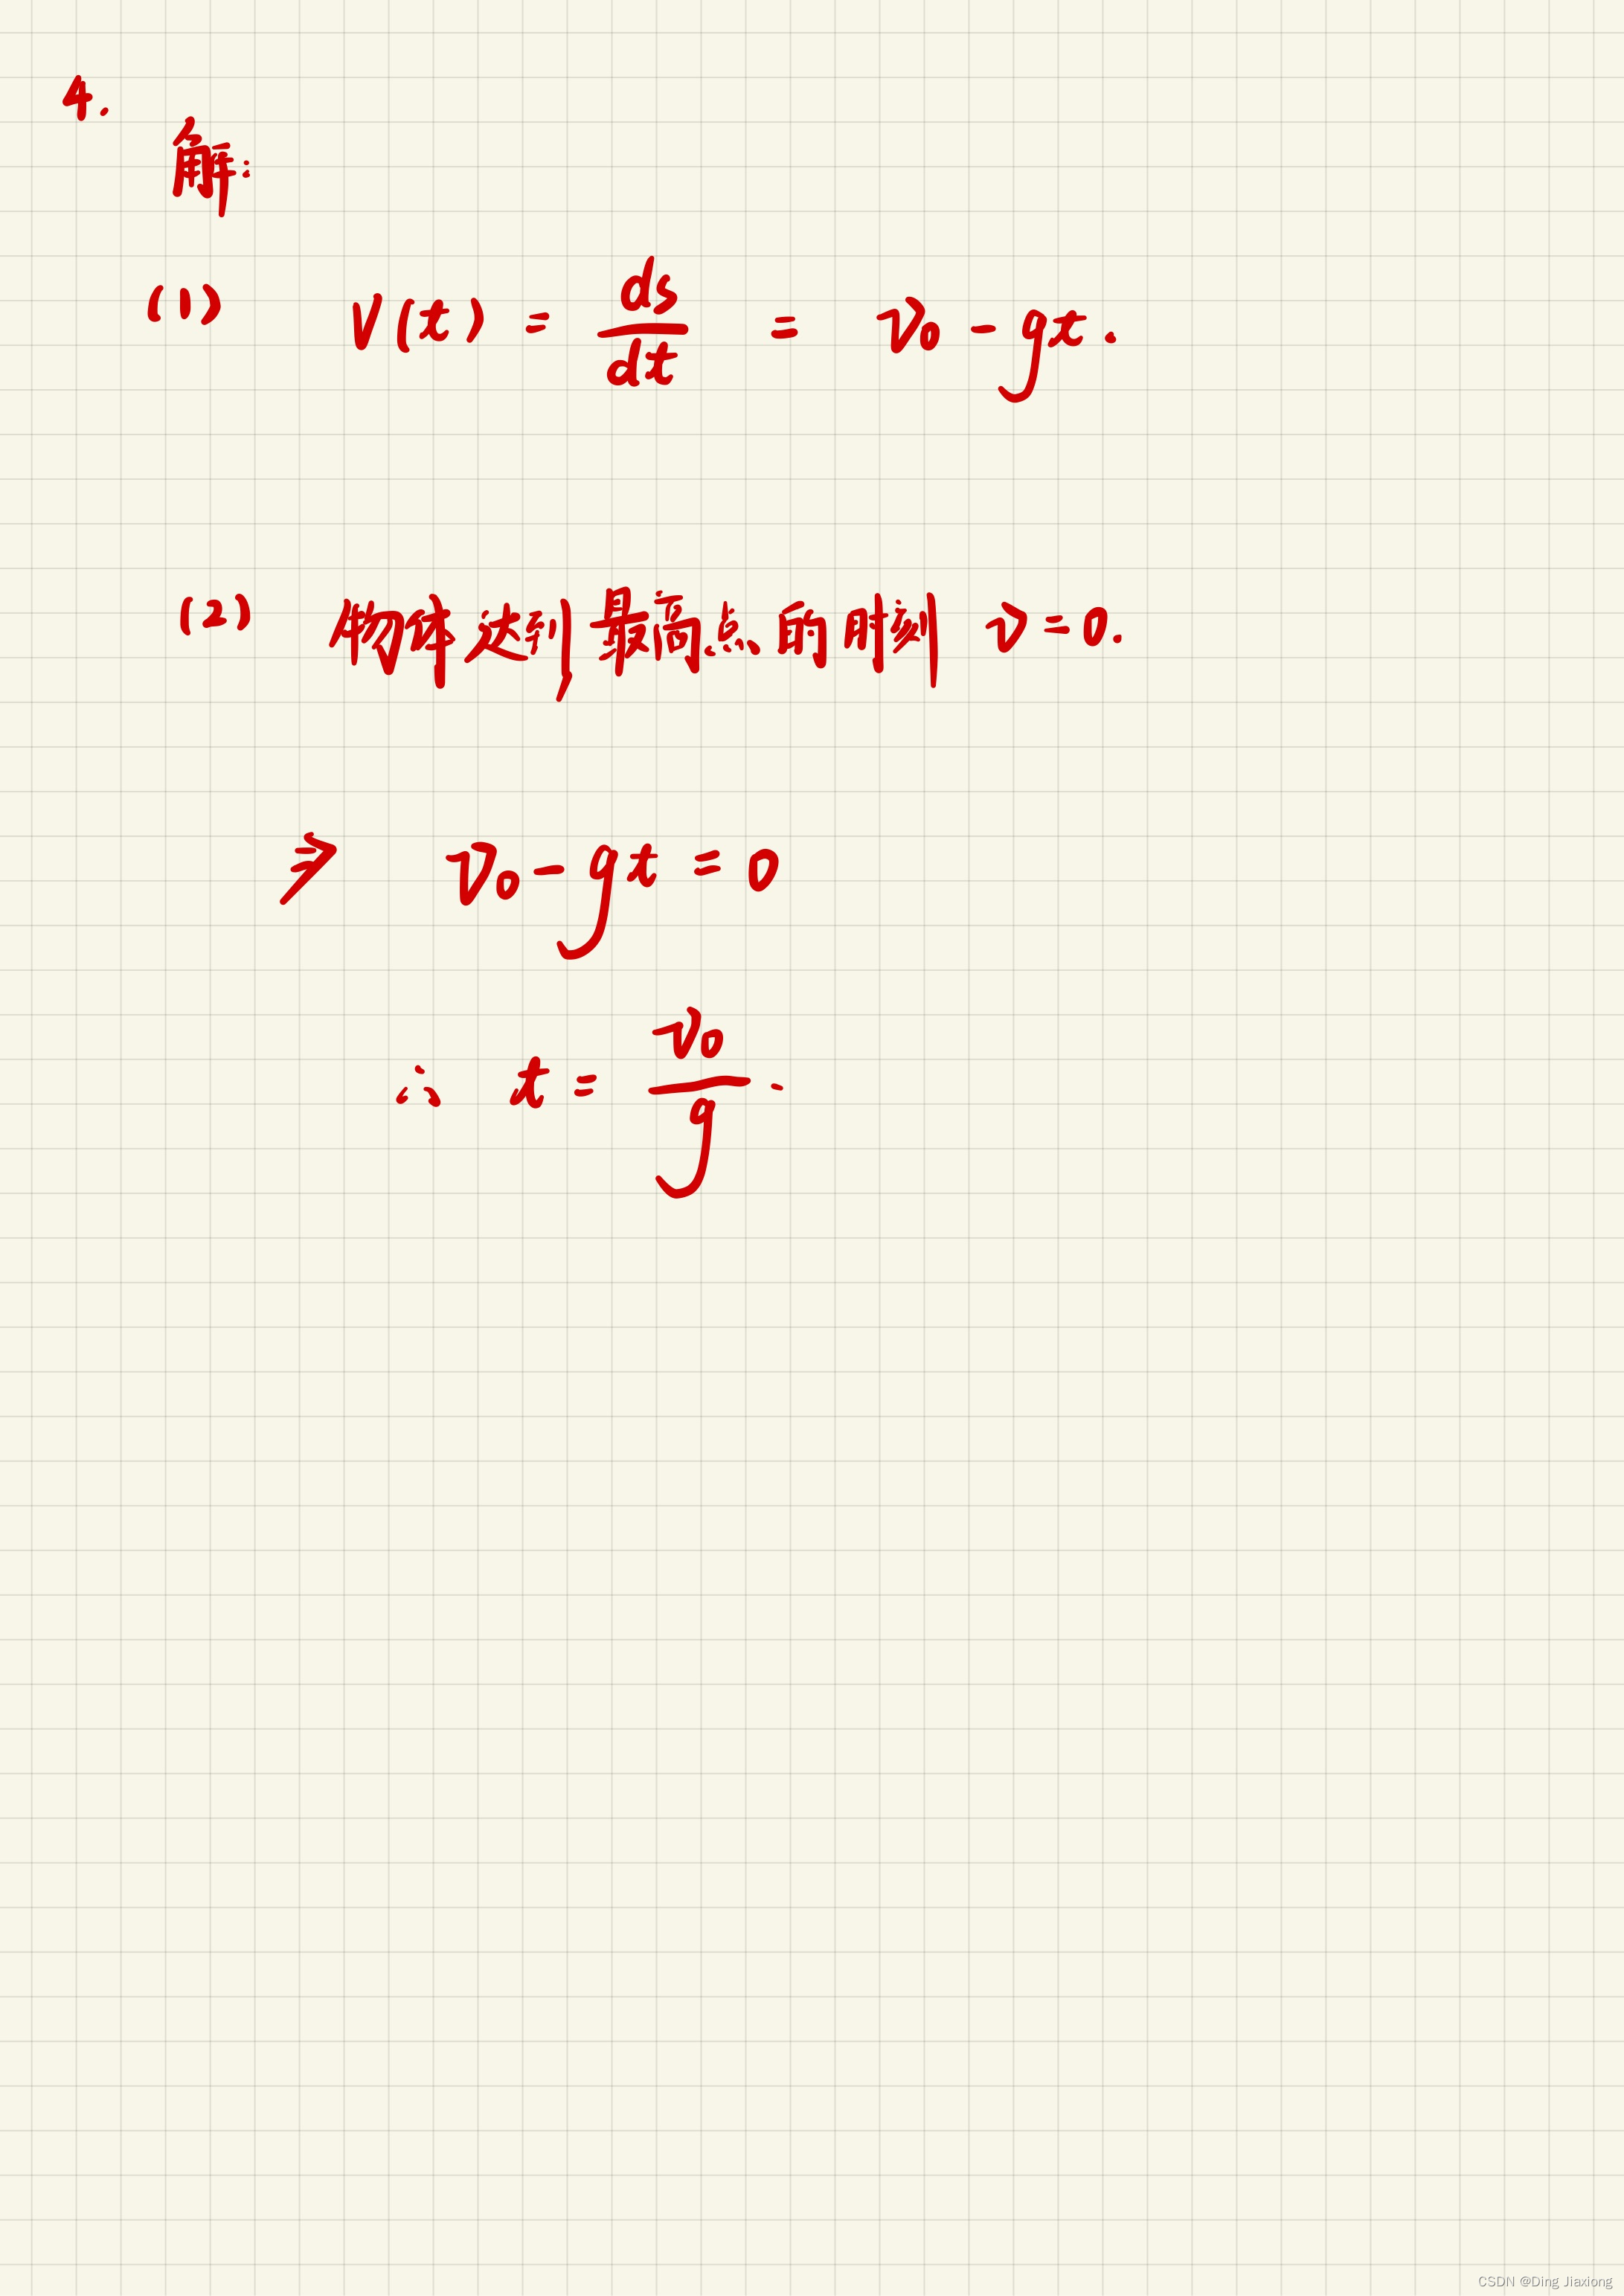 4.
解:
(1) V(t) = ds/dt = v₀ - gt.
(2) 物体达到最高点的时刻 v=0.
⇒ v₀ - gt = 0
∴ t = v₀/g .
CSDN @Ding Jiaxiong